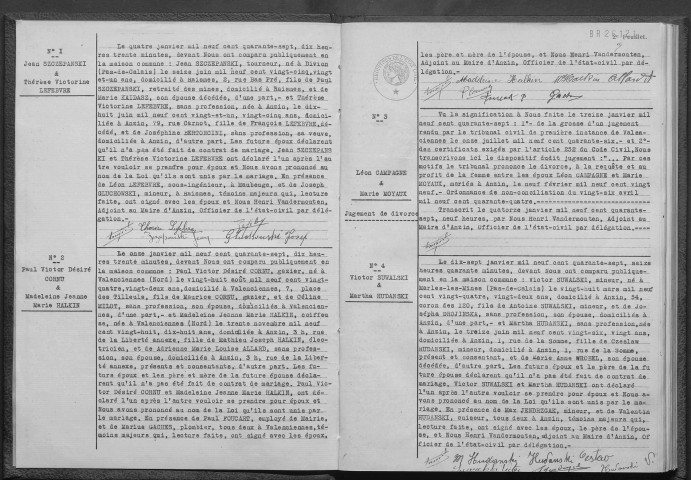 N° 1
Jean SZCZEPANSKI
&
Thérèse Victorine
LEFEBVRE
Le quatre janvier mil neuf cent quarante-sept, dix heu-
res trente minutes, devant Nous ont comparu publiquement en
la maison commune : Jean SZCZEPANSKI, tourneur, né à Divion
(Pas-de-Calais) le seize juin mil neuf cent vingt-cinq, vingt-
et-un ans, domicilié à Raismes, 2, Rue Des Pré, fils de Paul
SZCZEPANSKI, retraité des mines, domicilié à Raismes, et de
Marie KAIDASZ, son épouse décédée, d'une part,- et Thérèse
Victorine LEFEBVRE, sans profession, née à Anzin, le dix-
huit juin mil neuf cent vingt-et-un, vingt-cinq ans, domici-
liée à Anzin, 79, rue Carnot, fille de François LEFEBVRE, dé-
cédé, et de Joséphine BERTONCINI, sans profession, sa veuve,
domiciliée à Anzin, d'autre part. Les futurs époux déclarent
qu'il n'a pas été fait de contrat de mariage. Jean SZCZEPANS
KI et Thérèse Victorine LEFEBVRE ont déclaré l'un après l'au
tre vouloir se prendre pour époux et Nous avons prononcé au
nom de la Loi qu'ils sont unis par le mariage. En présence
de Léon LEFEBVRE, sous-ingénieur, à Maubeuge, et de Joseph
GLUCHOWSKI, mineur, à Raismes, témoins majeurs qui, lecture
faite, ont signé avec les époux et Nous Henri Vandermouten,
Adjoint au Maire d'Anzin, Officier de l'état-civil par délé-
gation.-
N° 2
Paul Victor Désiré
CORNU
&
Madeleine Jeanne
Marie HALKIN
Le onze janvier mil neuf cent quarante-sept, dix heu-
res trente minutes, devant Nous ont comparu publiquement en
la maison commune : Paul Victor Désiré CORNU, gazier, né à
Valenciennes (Nord) le vingt-huit août mil neuf cent vingt-
quatre, vingt-deux ans, domicilié à Valenciennes, 7, place
des Tilleuls, fils de Maurice CORNU, gazier, et de Céline
MILOT, sans profession, son épouse, domiciliés à Valencien-
nes, d'une part,- et Madeleine Jeanne Marie HALKIN, coiffeu
se, née à Valenciennes (Nord) le trente novembre mil neuf
cent vingt-huit, dix-huit ans, domiciliée à Anzin, 3 h, rue
de la Liberté annexe, fille de Mathieu Joseph HALKIN, élec-
tricien, et de Adrienne Marie Louise ALLARD, sans profes-
sion, son épouse, domiciliés à Anzin, 3 h, rue de la Liber-
té annexe, présents et consentants, d'autre part. Les fu-
turs époux et les père et mère de la future épouse décla-
rent qu'il n'a pas été fait de contrat de mariage. Paul Vic-
tor Désiré CORNU et Madeleine Jeanne Marie HALKIN, ont dé-
claré l'un après l'autre vouloir se prendre pour époux et
Nous avons prononcé au nom de la Loi qu'ils sont unis par
le mariage. En présence de Paul FOUCART, employé de Mairie,
et de Marius GACHES, plombier, tous deux à Valenciennes, té-
moins majeurs qui, lecture faite, ont signé avec les époux,
les père et mère de l'épouse, et Nous Henri Vandermouten,
Adjoint au Maire d'Anzin, Officier de l'état-civil par dé-
légation.-
N° 3
Léon CAMPAGNE
&
Marie MOYAUX
Jugement de divorce
Vu la signification à Nous faite le treize janvier mil
neuf cent quarante-sept : 1°- de la grosse d'un jugement
rendu par le tribunal civil de première instance de Valen-
ciennes le onze juillet mil neuf cent quarante-six, et 2°-
des certificats exigés par l'article 252 du Code Civil, Nous
transcrivons ici le dispositif dudit jugement :"... Par ces
motifs le tribunal prononce le divorce, à la requête et au
profit de la femme entre les époux Léon CAMPAGNE et Marie
MOYAUX, mariés à Anzin, le neuf février mil neuf cent vingt
neuf.- Ordonnance de non-conciliation du vingt-six avril
mil neuf cent quarante-quatre.
Transcrit le quatorze janvier mil neuf cent quarante-
sept, neuf heures, par Nous Henri Vandermouten, Adjoint au
Maire d'Anzin, Officier de l'état-civil par délégation.
N° 4
Victor SUWALSKI
&
Martha HUDANSKI
Le dix-sept janvier mil neuf cent quarante-sept, seize
heures quarante minutes, devant Nous ont comparu publique-
ment en la maison commune : Victor SUWALSKI, mineur, né à
Marles-les-Mines (Pas-de-Calais) le vingt-huit août mil neuf
cent vingt-quatre, vingt-deux ans, domicilié à Anzin, 54,
coron des 120, fils de Antoine SUWALSKI, mineur, et de Jo-
sépha BROJINSKA, sans profession, son épouse, domiciliés à
Anzin, d'une part,- et Martha HUDANSKI, sans profession, née
à Anzin, le treize juin mil neuf cent vingt-six, vingt ans,
domiciliée à Anzin, 1, rue de la Somme, fille de Czeslaw
HUDANSKI, mineur, domicilié à Anzin, 1, rue de la Somme,
présent et consentant, et de Marie Anne WROZEL, son épouse,
décédée, d'autre part. Les futurs époux et le père de la fu
ture épouse déclarent qu'il n'a pas été fait de contrat de
mariage. Victor SUWALSKI et Martha HUDANSKI ont déclaré
l'un après l'autre vouloir se prendre pour époux et Nous
avons prononcé au nom de la Loi qu'ils sont unis par le ma-
riage. En présence de Max JENDRZCAK, mineur, et de Valentin
HUDANSKI, mineur, tous deux à Anzin, témoins majeurs qui,
lecture faite, ont signé avec les époux, le père de l'épou-
se, et Nous Henri Vandermouten, adjoint au Maire d'Anzin, Of
ficier de l'état-civil par délégation.-